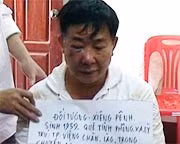 ĐỐI TƯỢNG: XIÊNG PÊNH.
SINH 1959. QUÊ TỈNH PHÔNG XA LỲ
TRÚ: TP VIÊNG CHĂN, LÀO, TRONG
CHUYÊN